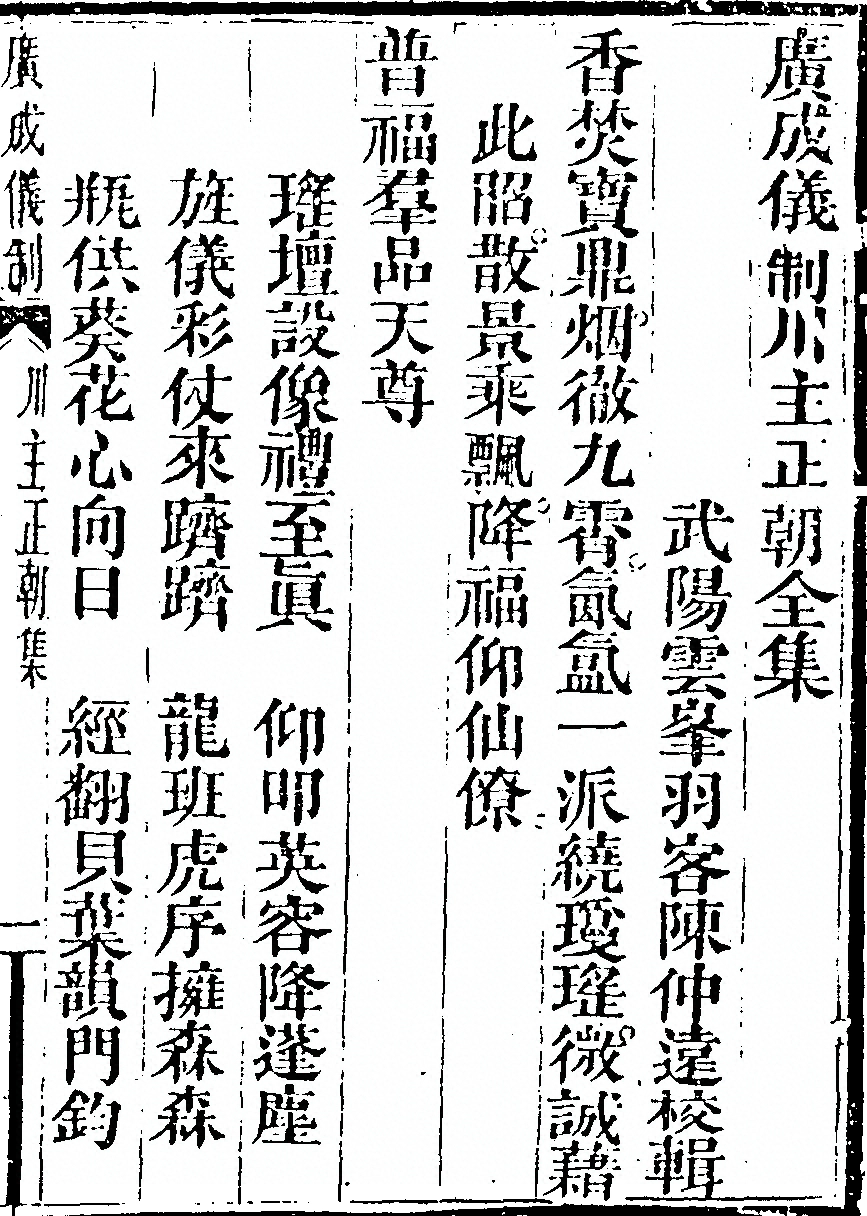 廣成儀制川主正朝全集
武陽雲峯羽客陳仲遠校輯
香焚寶鼎烟徹九霄氤氳一派繞瓊瑤微誠藉
此昭散景乘飄降福仰仙僚
普福羣品天尊
瑤壇設像禮至眞　仰叩英容降蓬塵
旌儀彩仗來躋躋　龍班虎序擁森森
瓶供葵花心向日　經翻貝葉韻門鈞
廣成儀制　川主正朝集　一